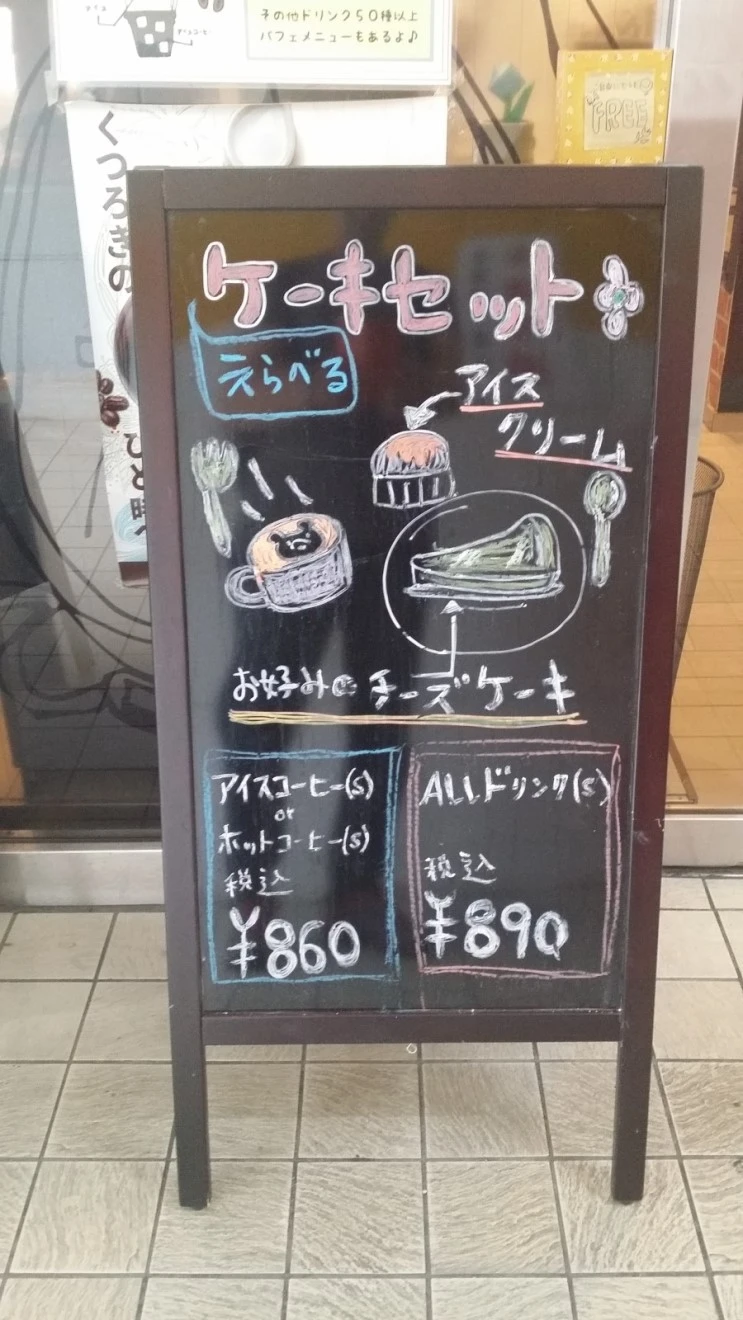 アイス
アイスコーヒー
その他ドリンク50種以上
パフェメニューもあるよ♪
FREE
くつろぎの
ひと時へ
ケーキセット
えらべる
アイス
クリーム
お好みの チーズケーキ
アイスコーヒー(S)
or
ホットコーヒー(S)
税込
¥860
ALLドリンク(S)
税込
¥890